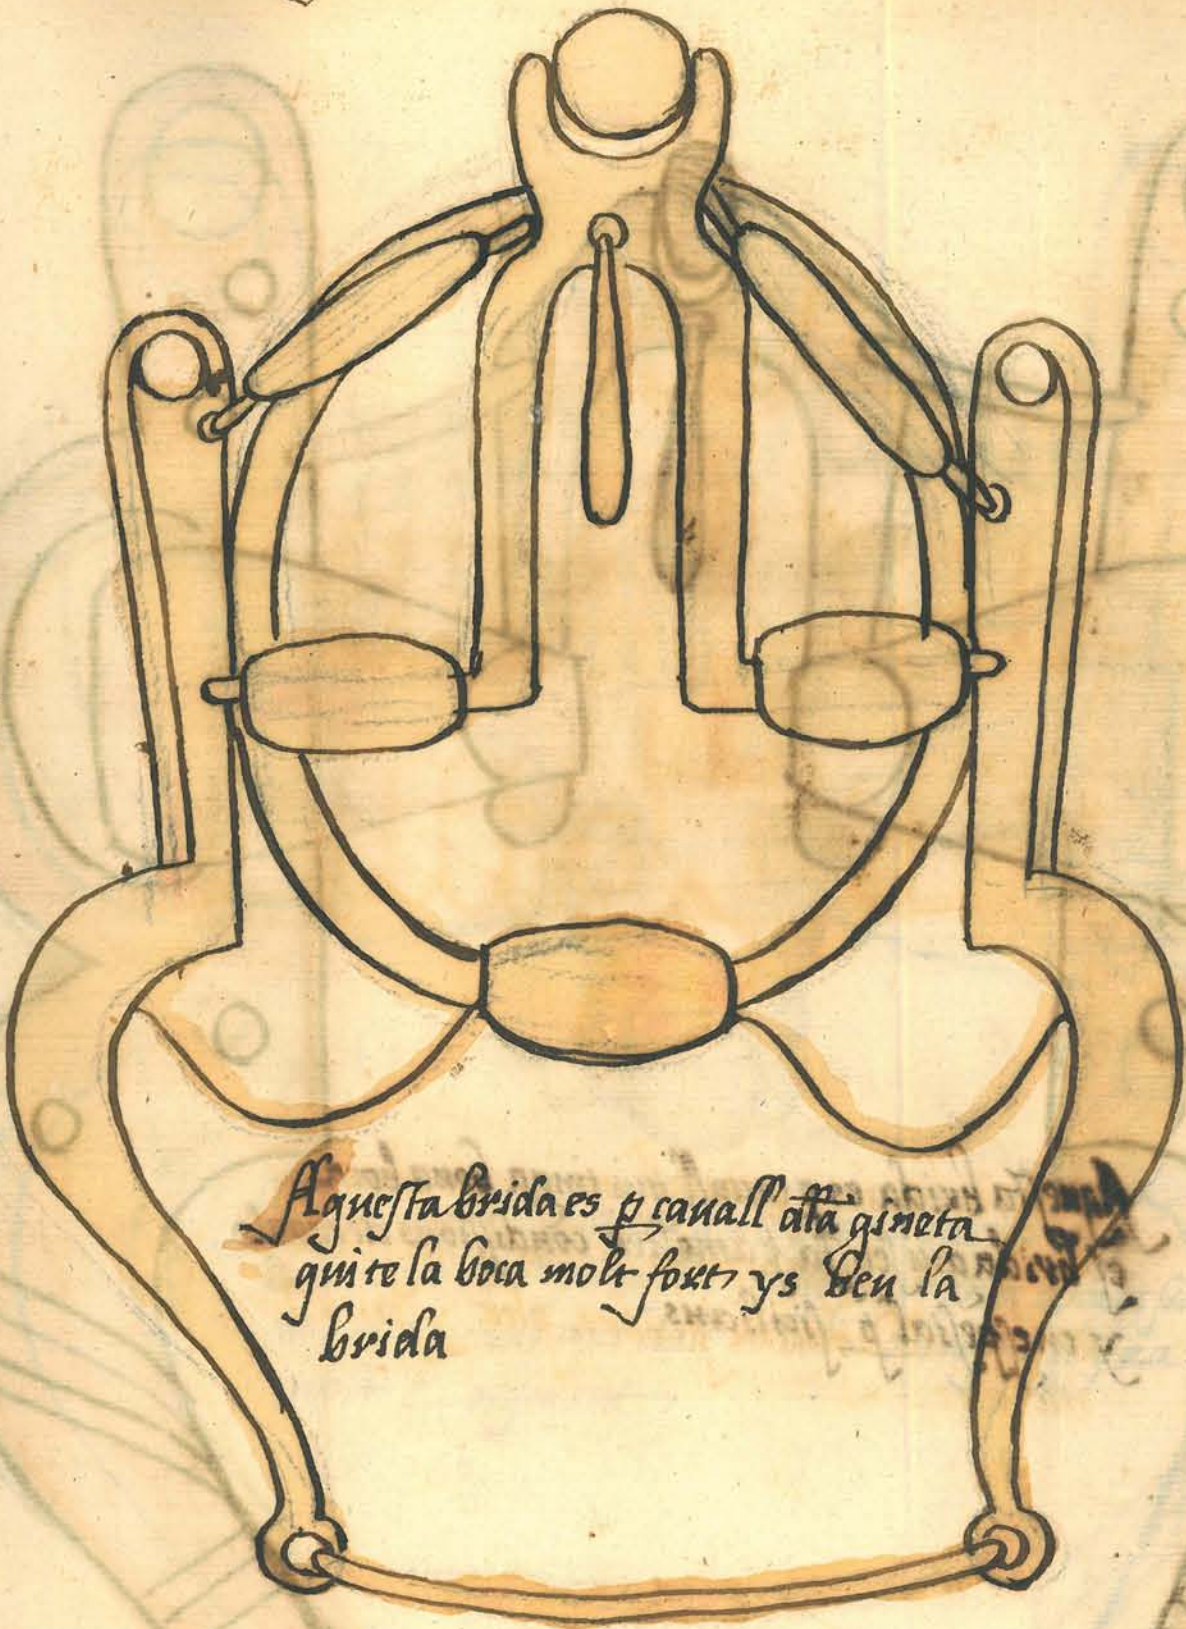 Aquesta brida es p cavall alla gineta
qui te la boca molt fort ys beu la
brida